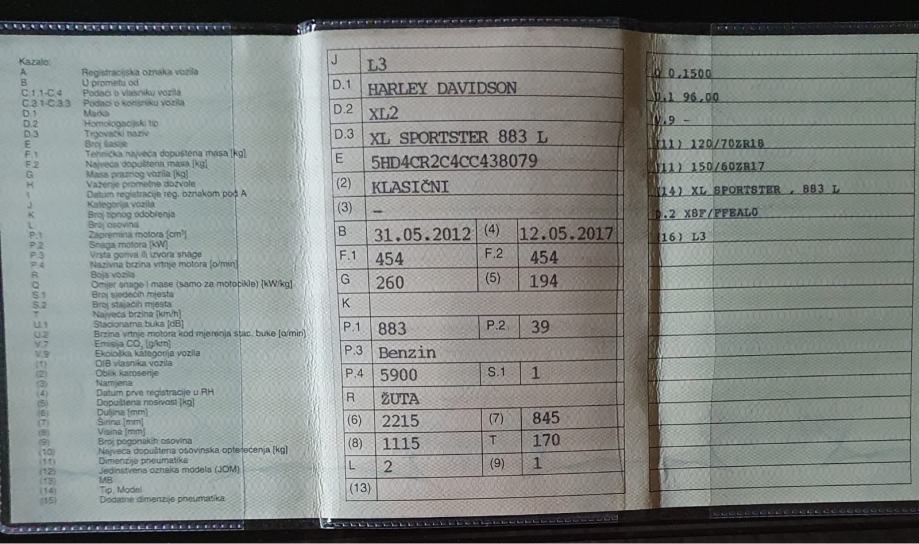 Kazalo:
A Registracijska oznaka vozila
B U prometu od
C.1.1-C.4 Podaci o vlasniku vozila
C.3.1-C.3.3 Podaci o korisniku vozila
D.1 Marka
D.2 Homologacijski tip
D.3 Trgovački naziv
E Broj šasije
F.1 Tehnička najveća dopuštena masa [kg]
F.2 Najveća dopuštena masa [kg]
G Masa praznog vozila [kg]
H Važenje prometne dozvole
I Datum registracije reg. oznakom pod A
J Kategorija vozila
K Broj tipnog odobrenja
L Broj osovina
P.1 Zapremina motora [cm³]
P.2 Snaga motora [kW]
P.3 Vrsta goriva ili izvora snage
P.4 Nazivna brzina vrtnje motora [o/min]
R Boja vozila
Q Omjer snage i mase (samo za motocikle) [kW/kg]
S.1 Broj sjedećih mjesta
S.2 Broj stajaćih mjesta
T Najveća brzina [km/h]
U.1 Stacionarna buka [dB]
U.2 Brzina vrtnje motora kod mjerenja stac. buke [o/min]
V.7 Emisija CO₂ [g/km]
V.9 Ekološka kategorija vozila
(1) OIB vlasnika vozila
(2) Oblik karoserije
(3) Namjena
(4) Datum prve registracije u RH
(5) Dopuštena nosivost [kg]
(6) Duljina [mm]
(7) Širina [mm]
(8) Visina [mm]
(9) Broj pogonskih osovina
(10) Najveća dopuštena osovinska opterećenja [kg]
(11) Dimenzije pneumatika
(12) Jedinstvena oznaka modela (JOM)
(13) MB
(14) Tip, Model
(15) Dodatne dimenzije pneumatika
J L3
D.1 HARLEY DAVIDSON
D.2 XL2
D.3 XL SPORTSTER 883 L
E 5HD4CR2C4CC438079
(2) KLASIČNI
(3) –
B 31.05.2012 (4) 12.05.2017
F.1 454 F.2 454
G 260 (5) 194
K
P.1 883 P.2 39
P.3 Benzin
P.4 5900 S.1 1
R ŽUTA
(6) 2215 (7) 845
(8) 1115 T 170
L 2 (9) 1
(13)
0.1500
.1 96.00
.9 -
(11) 120/70ZR18
(11) 150/60ZR17
(14) XL SPORTSTER , 883 L
.2 XBF/FFBALG
(16) L3